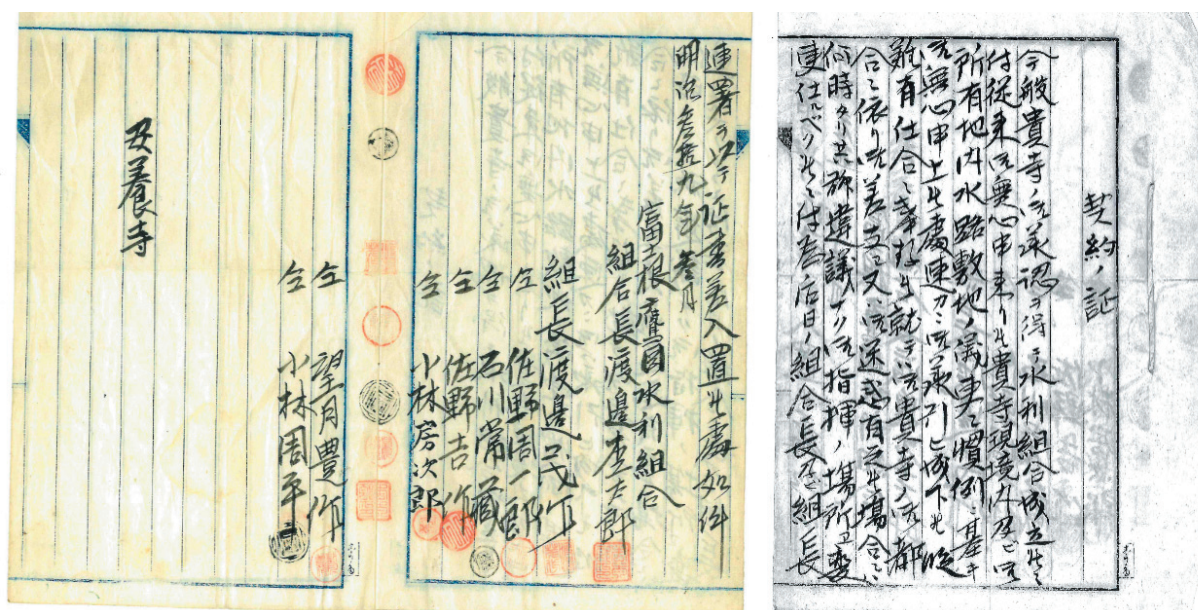 契約ノ証
今般貴寺ノ御承認ヲ得テ水利組合成立候ニ
付従来御無心申来リ候貴寺現境内及ビ御
所有地内水路敷地ノ儀更ニ慣例ニ基キ
御無心申上候處速カニ御承引被成下候段
難有仕合ニ奉存候就テハ御貴寺ノ御都
合ニ依リ御差支又ハ御迷惑有之候場合ハ
何時タリ共御違議ナク御指揮ノ場所ヱ変
更仕ルベク候ニ付為後日ノ組合長及ビ組長
連署ヲ以テ証書差入置候處如件
明治参拾九年参月
富士根鷹岡水利組合
組合長渡邊杢太郎
組長渡邊茂作
仝 佐野周一郎
仝 石川常蔵
仝 佐野吉作
仝 小林房次郎
仝 望月豊作
仝 小林周平
妥養寺